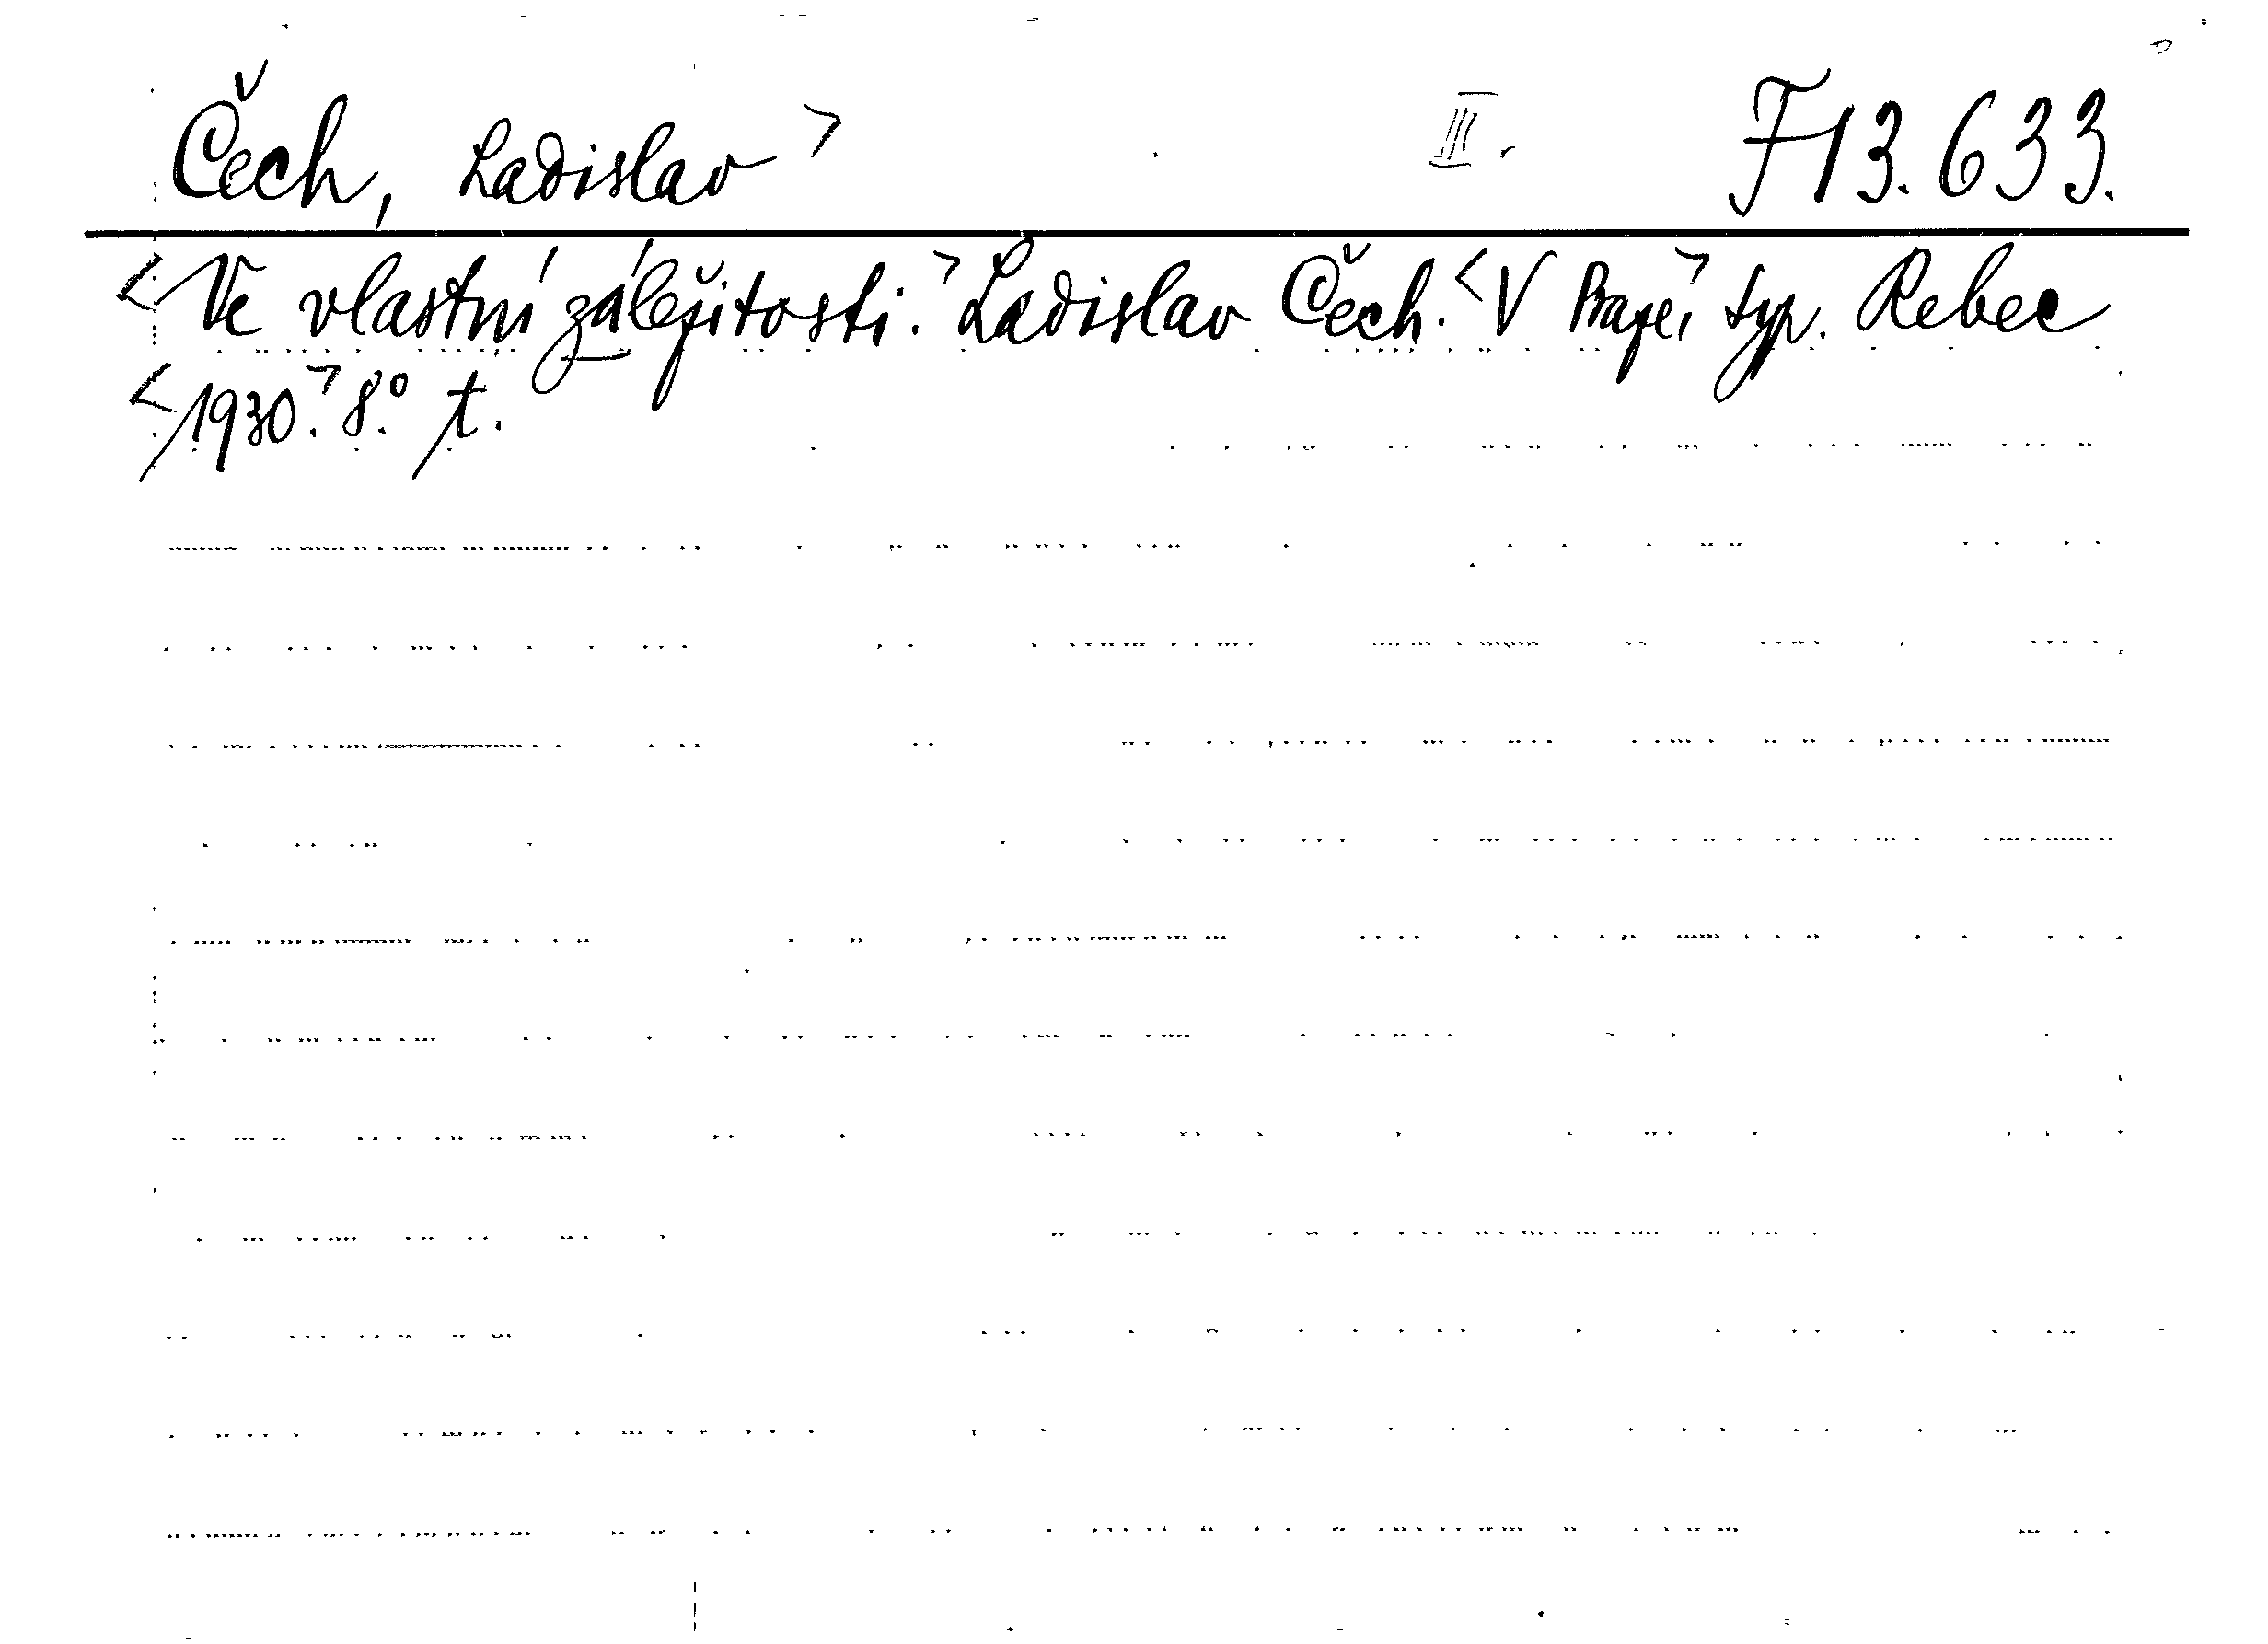 Čech, Ladislav > III. F13.633.
<Ve vlastní záležitosti.> Ladislav Čech. <V Praze,> typ. Rebec
<1930.> 8.° t.